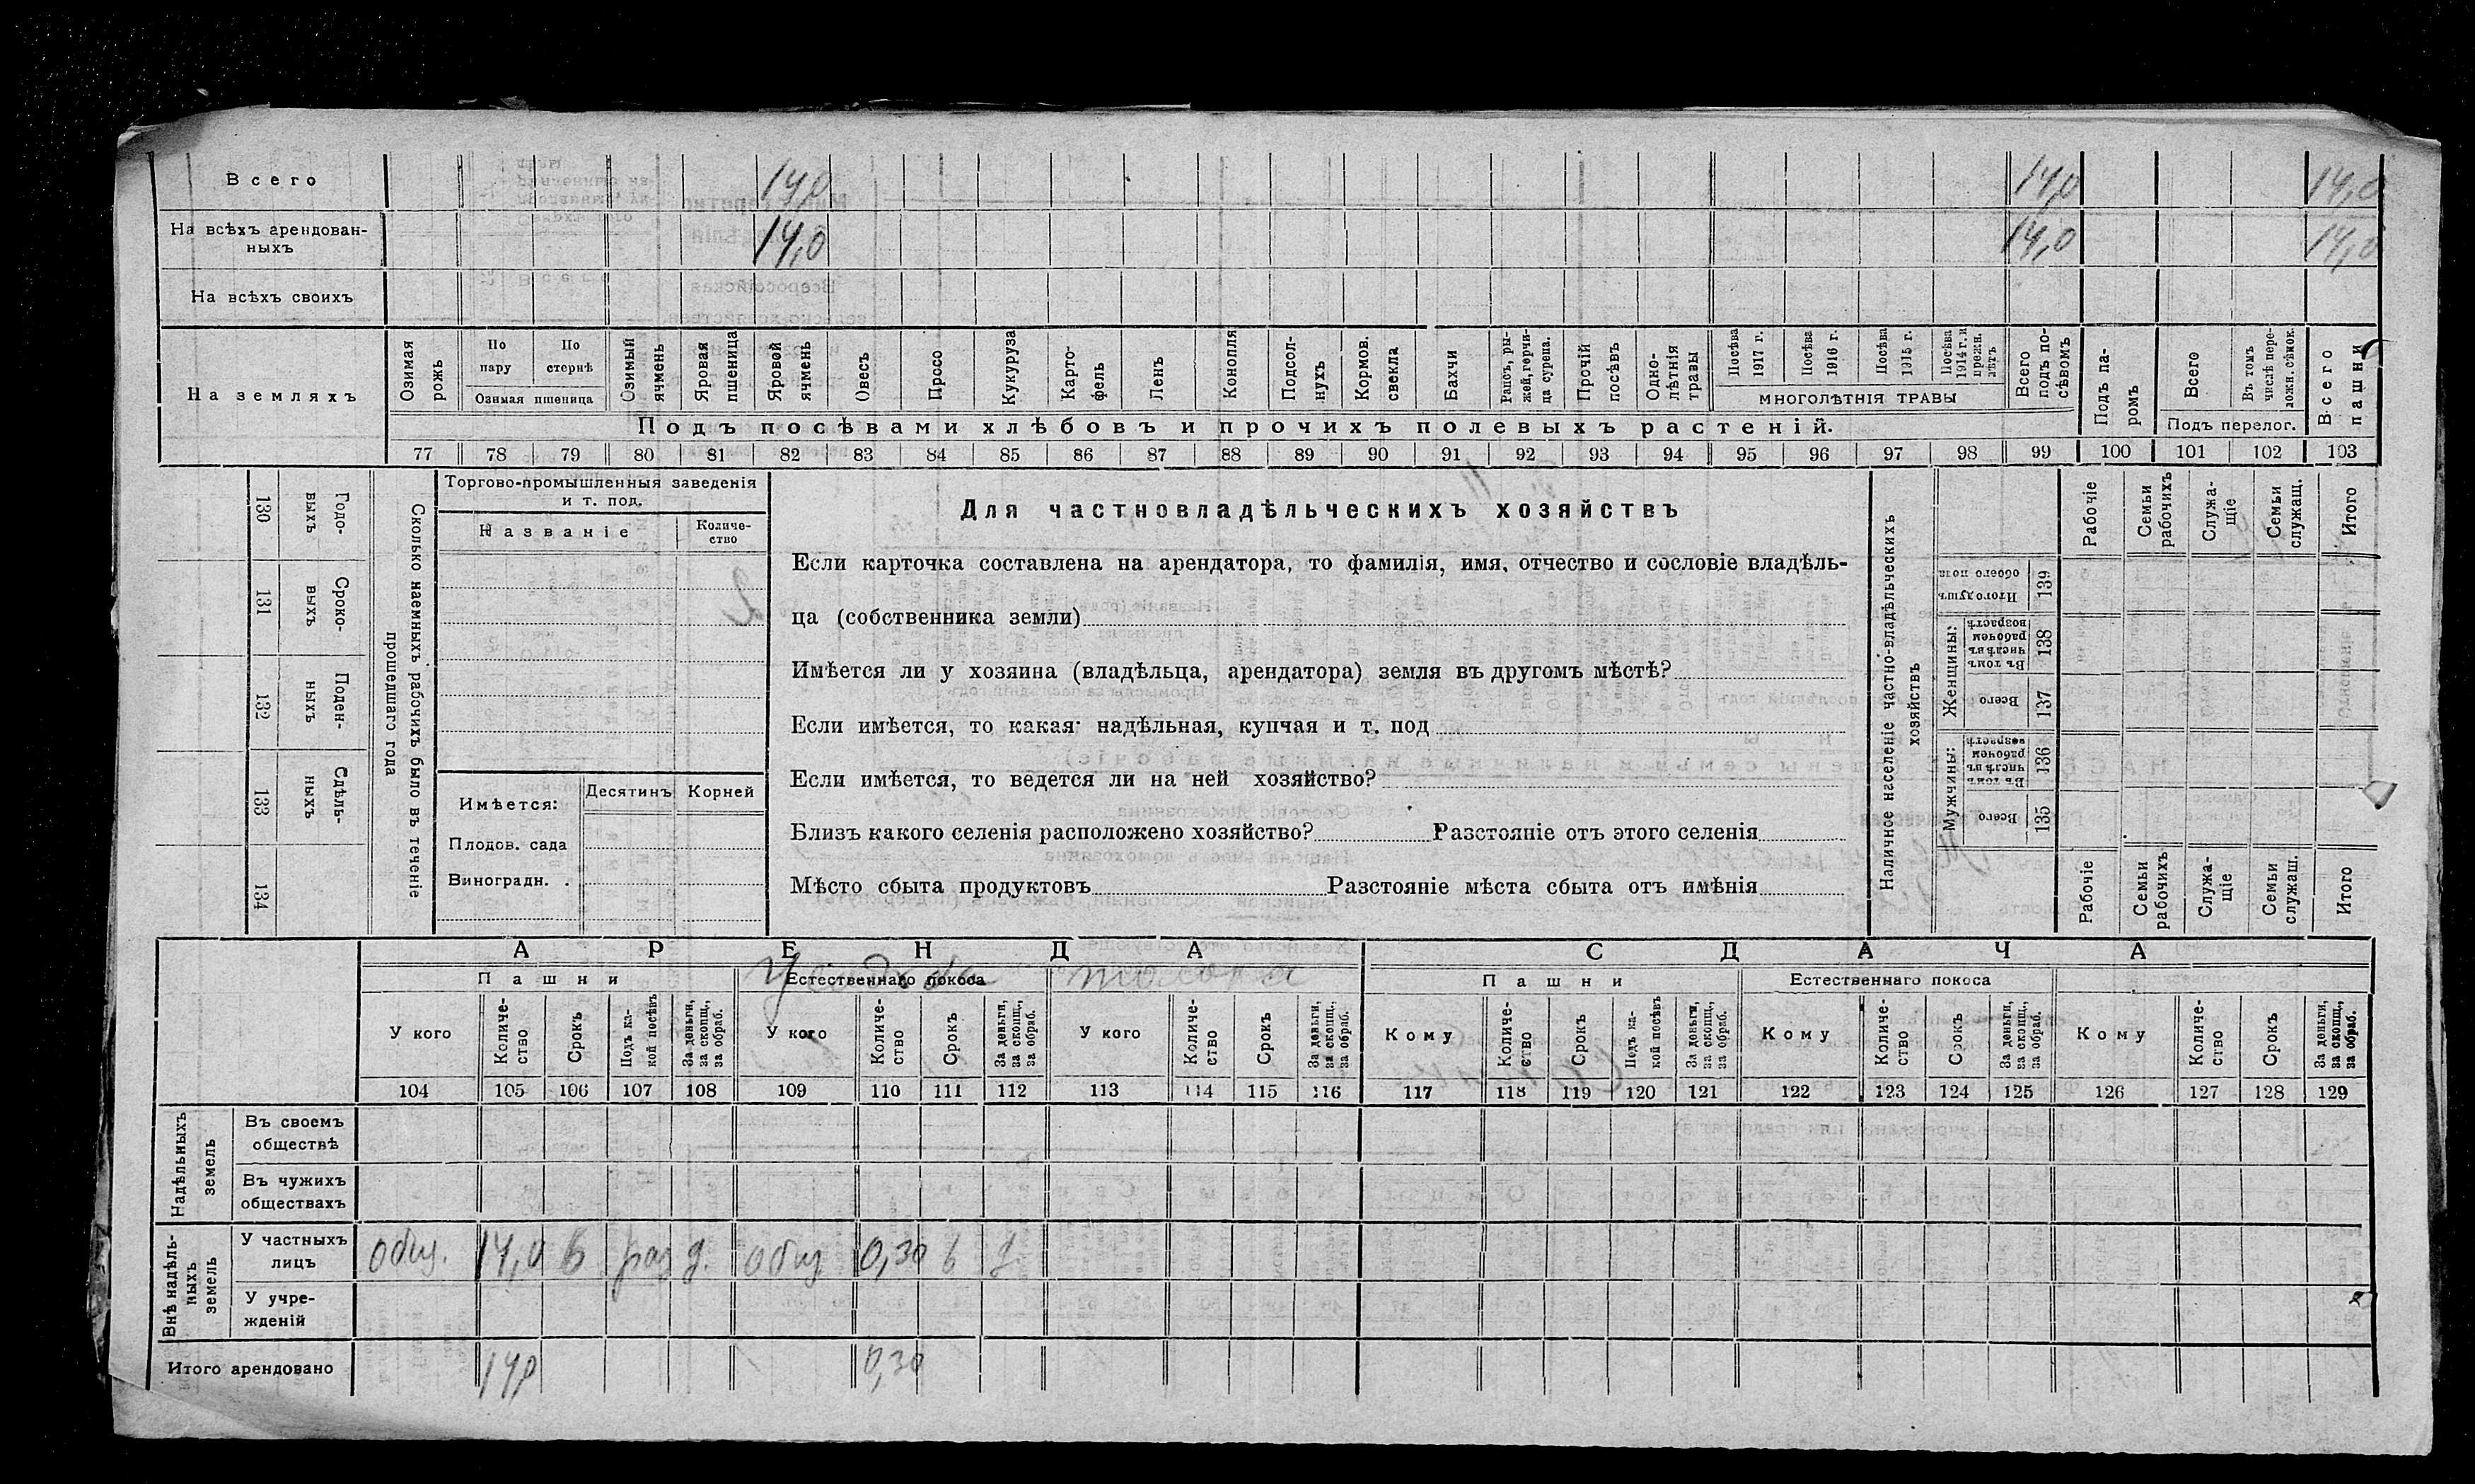 Всего 14,0 14,0 14,0
На всѣхъ арендован-
ныхъ 14,0 14,0 14,0
На всѣхъ своихъ
На земляхъ
Озимая рожь
По пару
По стернѣ
Озимая пшеница
Озимый ячмень
Яровая пшеница
Яровой ячмень
Овесъ
Просо
Кукуруза
Карто-
фель
Ленъ
Конопля
Подсол-
нухъ
Кормов.
свекла
Бахчи
Рапсъ, ры-
жей, горчи-
ца сурепа.
Прочій
посѣвъ
Одно-
лѣтнія
травы
Посѣва
1917 г.
Посѣва
1916 г.
Посѣва
1915 г.
Посѣва
1914 г. и
прежн.
лѣтъ
МНОГОЛѢТНІЯ ТРАВЫ
Всего
подъ по-
сѣвомъ
Подъ па-
ромъ
Всего
Въ томъ
числѣ пере-
ложн. сѣнок.
Подъ перелог.
Всего
пашни
Подъ посѣвами хлѣбовъ и прочихъ полевыхъ растеній.
77 78 79 80 81 82 83 84 85 86 87 88 89 90 91 92 93 94 95 96 97 98 99 100 101 102 103
Сколько наемныхъ рабочихъ было въ теченіе
прошедшаго года
Годо-
выхъ
130
Сроко-
выхъ
131
Поден-
ныхъ
132
Сдѣль-
ныхъ
133
134
Торгово-промышленныя заведенія
и т. под.
Названіе
Количе-
ство
Имѣется:
Десятинъ
Корней
Плодов. сада
Виноградн.
Для частновладѣльческихъ хозяйствъ
Если карточка составлена на арендатора, то фамилія, имя, отчество и сословіе владѣль-
ца (собственника земли)
Имѣется ли у хозяина (владѣльца, арендатора) земля въ другомъ мѣстѣ?
Если имѣется, то какая: надѣльная, купчая и т. под
Если имѣется, то ведется ли на ней хозяйство?
Близъ какого селенія расположено хозяйство? Разстояніе отъ этого селенія
Мѣсто сбыта продуктовъ Разстояніе мѣста сбыта отъ имѣнія
Наличное населеніе частно-владѣльческихъ
хозяйствъ
Рабочіе
Семьи
рабочихъ
Служа-
щіе
Семьи
служащ.
Итого
Итого душъ
обоего пола
139
Женщины:
Въ томъ
числѣ въ
рабочем
возрастѣ
138
Всего
137
Мужчины:
Въ томъ
числѣ въ
рабочем
возрастѣ
136
Всего
135
Рабочіе
Семьи
рабочихъ
Служа-
щіе
Семьи
служащ.
Итого
АРЕНДА
СДАЧА
Пашни
Естественнаго покоса
Пашни
Естественнаго покоса
У кого
Количе-
ство
Срокъ
Подъ ка-
кой посѣвъ
За деньги,
за скопщ.,
за обраб.
У кого
Количе-
ство
Срокъ
За деньги,
за скопщ.,
за обраб.
У кого
Количе-
ство
Срокъ
За деньги,
за скопщ.,
за обраб.
Кому
Количе-
ство
Срокъ
Подъ ка-
кой посѣвъ
За деньги,
за скопщ.,
за обраб.
Кому
Количе-
ство
Срокъ
За деньги,
за скопщ.,
за обраб.
Кому
Количе-
ство
Срокъ
За деньги,
за скопщ.,
за обраб.
104 105 106 107 108 109 110 111 112 113 114 115 116 117 118 119 120 121 122 123 124 125 126 127 128 129
Надѣльныхъ
земель
Въ своемъ
обществѣ
Въ чужихъ
обществахъ
Внѣ надѣль-
ныхъ
земель
У частныхъ
лицъ
общ. 14,0 6 раз д. общ 0,30 6 д
У учре-
жденій
Итого арендовано 14,0 0,30